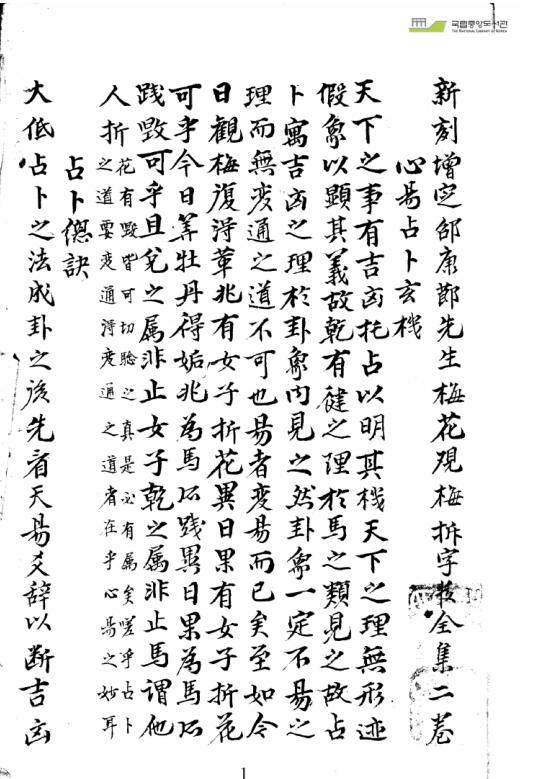 국립중앙도서관
THE NATIONAL LIBRARY OF KOREA
新刻增定邵康節先生梅花观梅拆字数全集二卷
心易占卜玄機
天下之事有吉凶托占以明其機天下之理無形迹
假象以顕其義故乾有健之理於馬之類見之故占
卜寓吉凶之理於卦象内見之然卦象一定不易之
理而無変通之道不可也易者変易而已矣至如今
日觀梅復淂革兆有女子折花異日果有女子折花
可乎今日筭牡丹得姤兆為馬所踐異日果為馬所
践毀可乎且兌之属非止女子乾之属非止馬謂他
人折花有毀皆可切驗之真是必有属矣嗟乎占卜
之道要変通淂変通之道者在乎心易之妙耳
占卜緫訣
大低占卜之法成卦之後先看天易爻辞以断吉凶
1